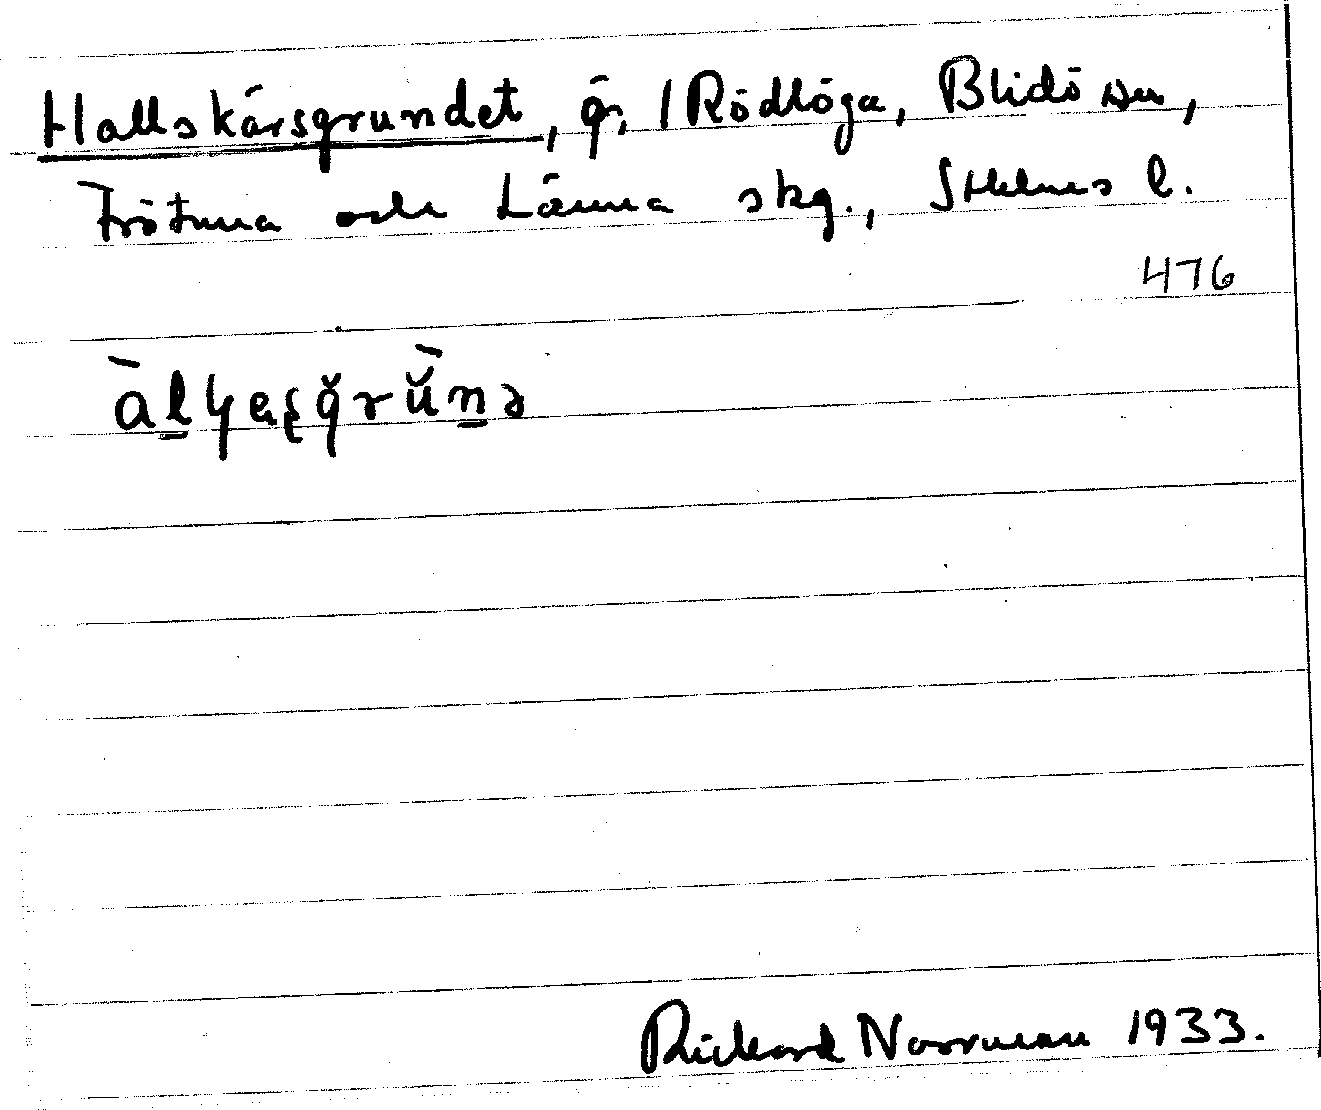 Hallskärsgrundet, gr, /Rödlöga, Blidö sn,
Frötuna och Länna skg., Sthlms l.
476
Rickard Norrman 1933.